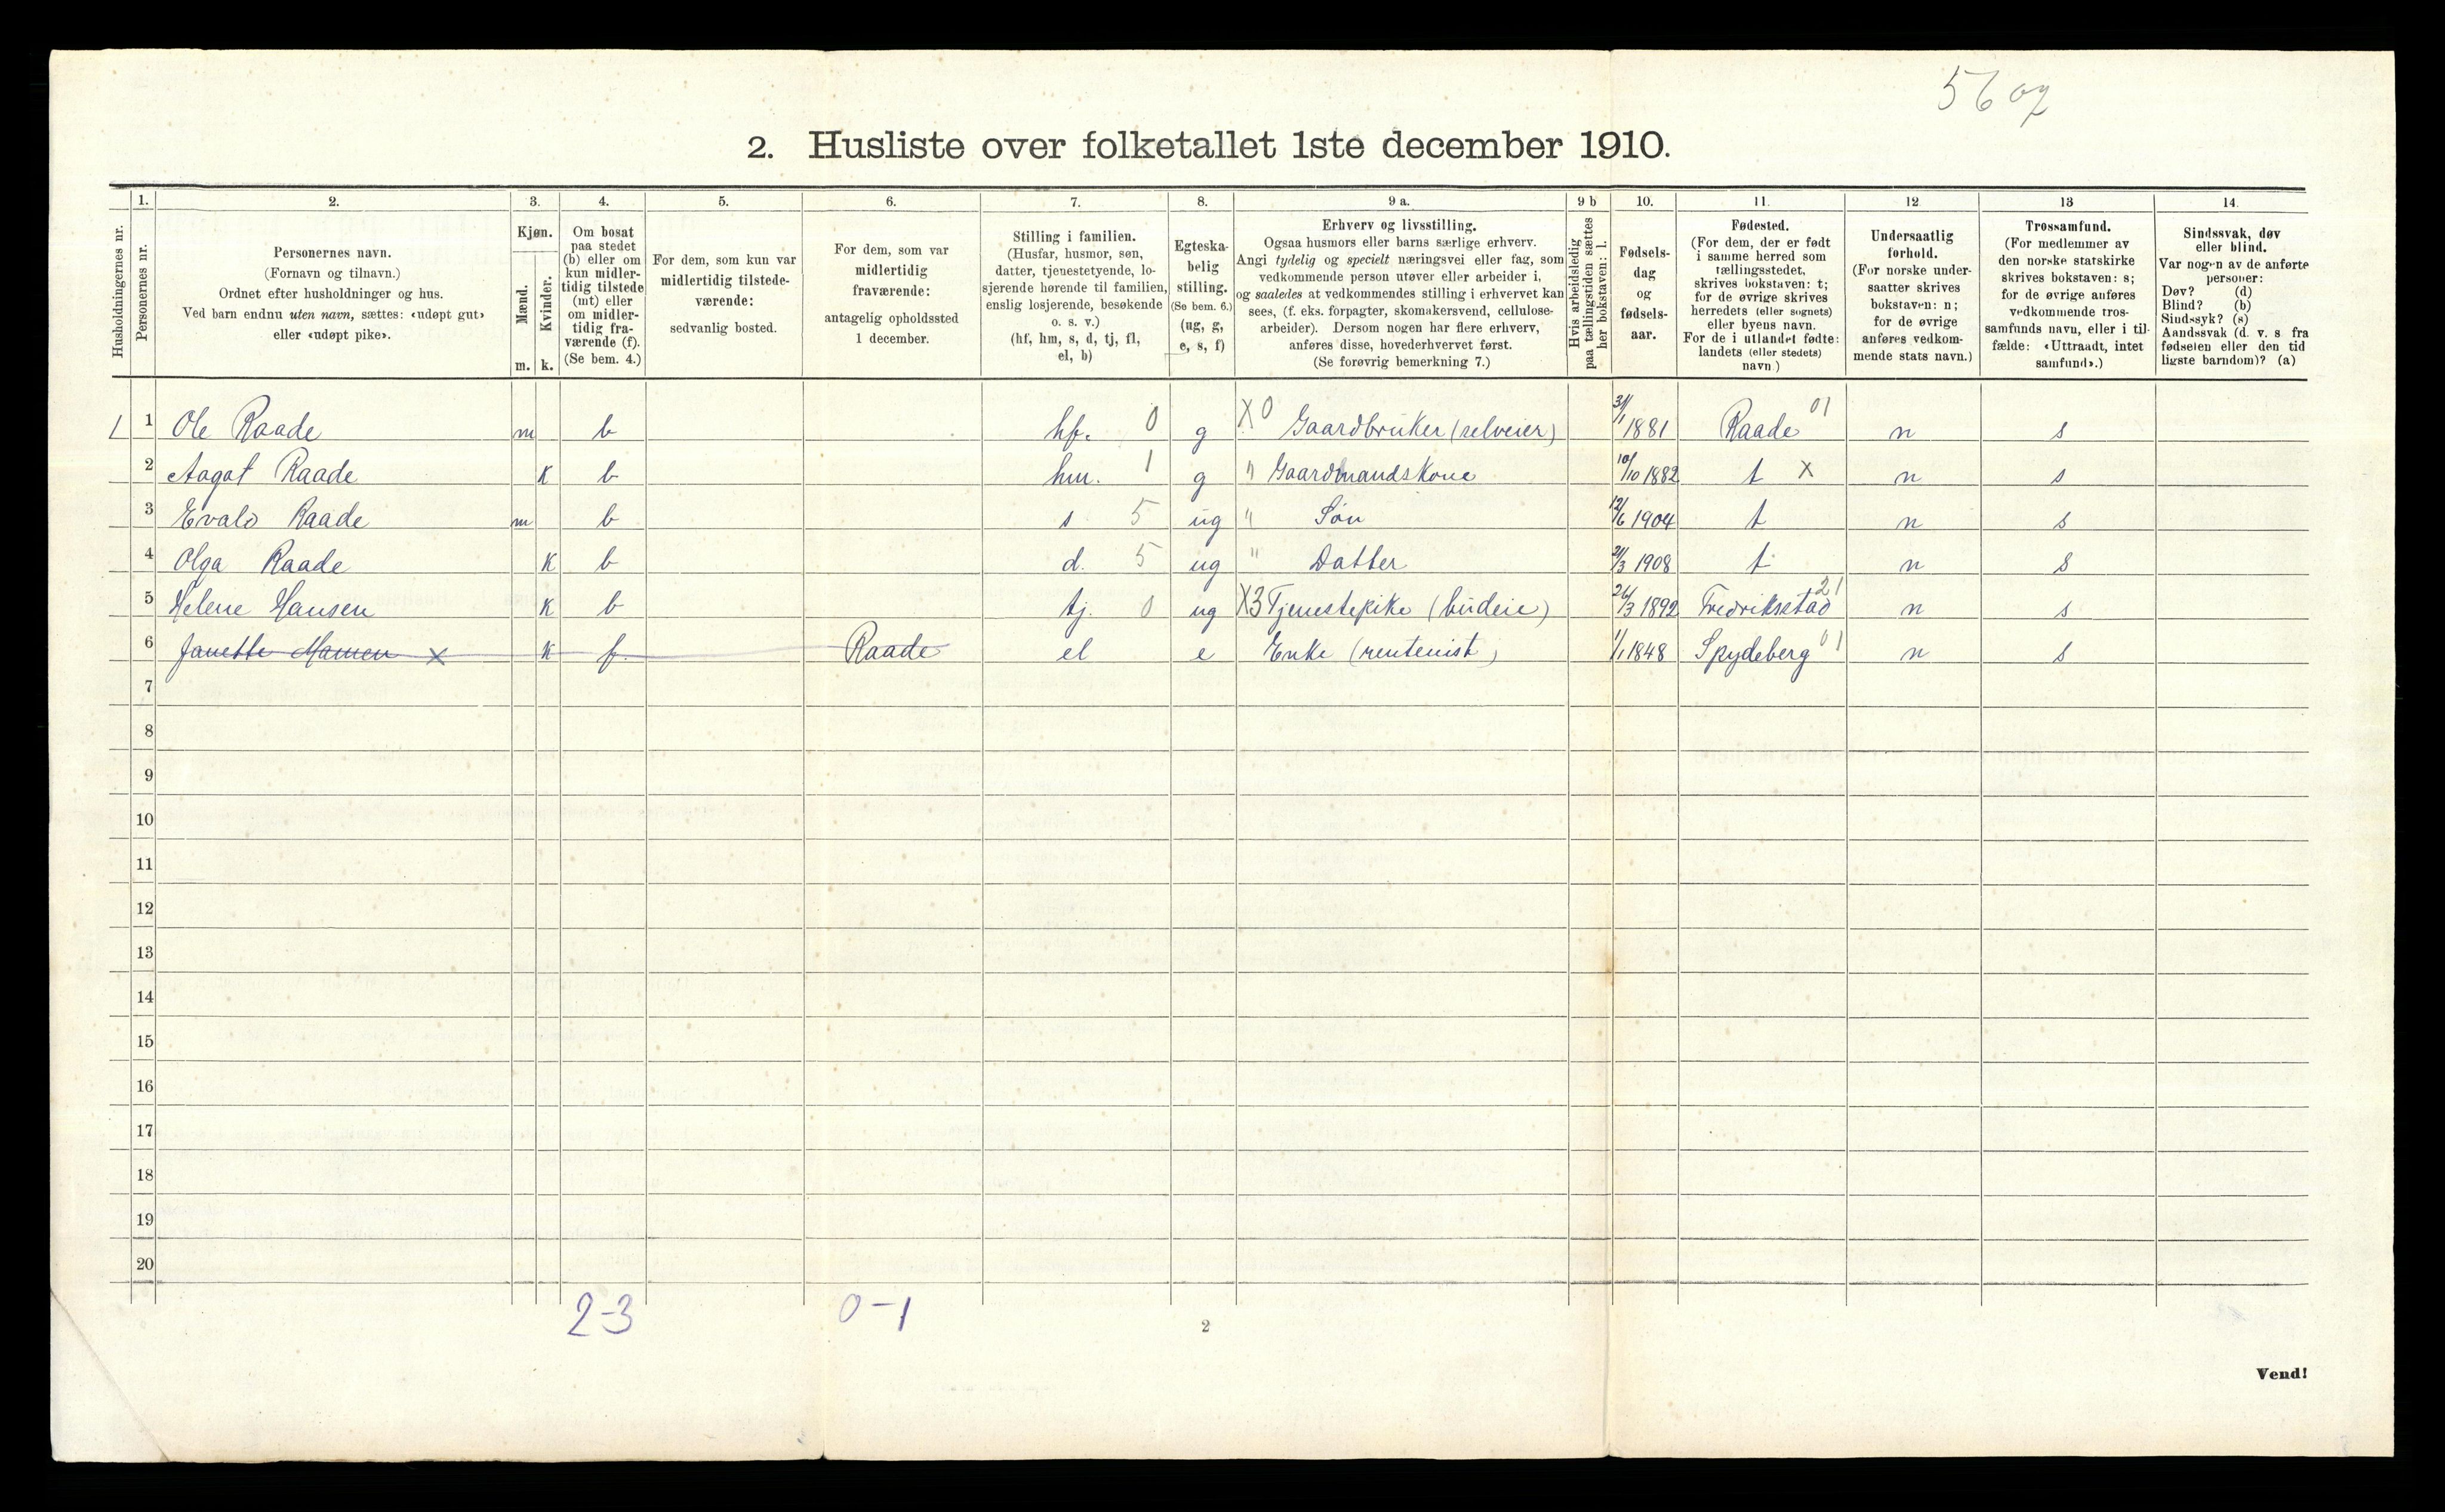 56 og
2. Husliste over folketallet 1ste december 1910.
1. 2. 3. 4. 5. 6. 7. 8. 9 a. 9 b 10. 11. 12 13 14.
Husholdningernes nr.
Personernes nr.
Personernes navn.
(Fornavn og tilnavn.)
Ordnet efter husholdninger og hus.
Ved barn endnu uten navn, sættes: «udøpt gut»
eller «udøpt pike».
Kjøn.
Mænd.
Kvinder.
m. k.
Om bosat
paa stedet
(b) eller om
kun midler-
tidig tilstede
(mt) eller
om midler-
tidig fra-
værende (f).
(Se bem. 4.)
For dem, som kun var
midlertidig tilstede-
værende:
sedvanlig bosted.
For dem, som var
midlertidig
fraværende:
antagelig opholdssted
1 december.
Stilling i familien.
(Husfar, husmor, søn,
datter, tjenestetyende, lo-
sjerende hørende til familien,
enslig losjerende, besøkende
o. s. v.)
(hf, hm, s, d, tj, fl,
el, b)
Egteska-
belig
stilling.
(Se bem. 6.)
(ug, g,
e, s, f)
Erhverv og livsstilling.
Ogsaa husmors eller barns særlige erhverv.
Angi tydelig og specielt næringsvei eller fag, som
vedkommende person utøver eller arbeider i,
og saaledes at vedkommendes stilling i erhvervet kan
sees, (f. eks. forpagter, skomakersvend, cellulose-
arbeider). Dersom nogen har flere erhverv,
anføres disse, hovederhvervet først.
(Se forøvrig bemerkning 7.)
Hvis arbeidsledig
paa tællingstiden sættes
her bokstaven: l.
Fødsels-
dag
og
fødsels-
aar.
Fødested.
(For dem, der er født
i samme herred som
tællingsstedet,
skrives bokstaven: t;
for de øvrige skrives
herredets (eller sognets)
eller byens navn.
For de i utlandet fødte:
landets (eller stedets)
navn.)
Undersaatlig
forhold.
(For norske under-
saatter skrives
bokstaven: n;
for de øvrige
anføres vedkom-
mende stats navn.)
Trossamfund.
(For medlemmer av
den norske statskirke
skrives bokstaven: s;
for de øvrige anføres
vedkommende tros-
samfunds navn, eller i til-
fælde: «Uttraadt, intet
samfund».)
Sindssvak, døv
eller blind.
Var nogen av de anførte
personer:
Døv? (d)
Blind? (b)
Sindssyk? (s)
Aandssvak (d. v. s. fra
fødselen eller den tid
ligste barndom)? (a)
1 1 Ole Raade m b hf. 0 g X0 Gaardbruker (selveier) 31/1 1881 Raade 01 n s
2 Aagot Raade K b hm. 1 g " Gaardmandskone 10/10 1882 t X n s
3 Evald Raade m b s 5 ug " Søn 12/6 1904 t n s
4 Olga Raade K b d. 5 ug " Datter 21/3 1908 t n s
5 Helene Hansen K b tj. 0 ug X3 Tjenestepike (budeie) 26/3 1892 Fredriksstad 21 n s
6 Janette Mamen X K f. Raade el e Enke (rentenist) 1/1 1848 Spydeberg 01 n s
7
8
9
10
11
12
13
14
15
16
17
18
19
20
2-3 0-1
2
Vend!